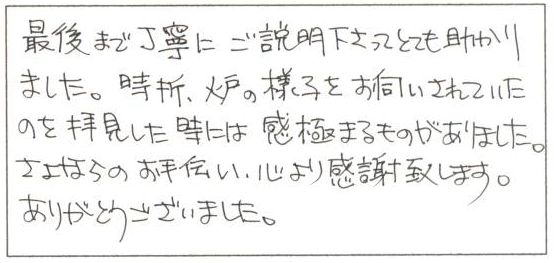 最後まで丁寧にご説明下さってとても助かり
ました。時折、火戸の様子をお伺いされていた
のを拝見した時には感極まるものがありました。
さよならのお手伝い、心より感謝致します。
ありがとうございました。